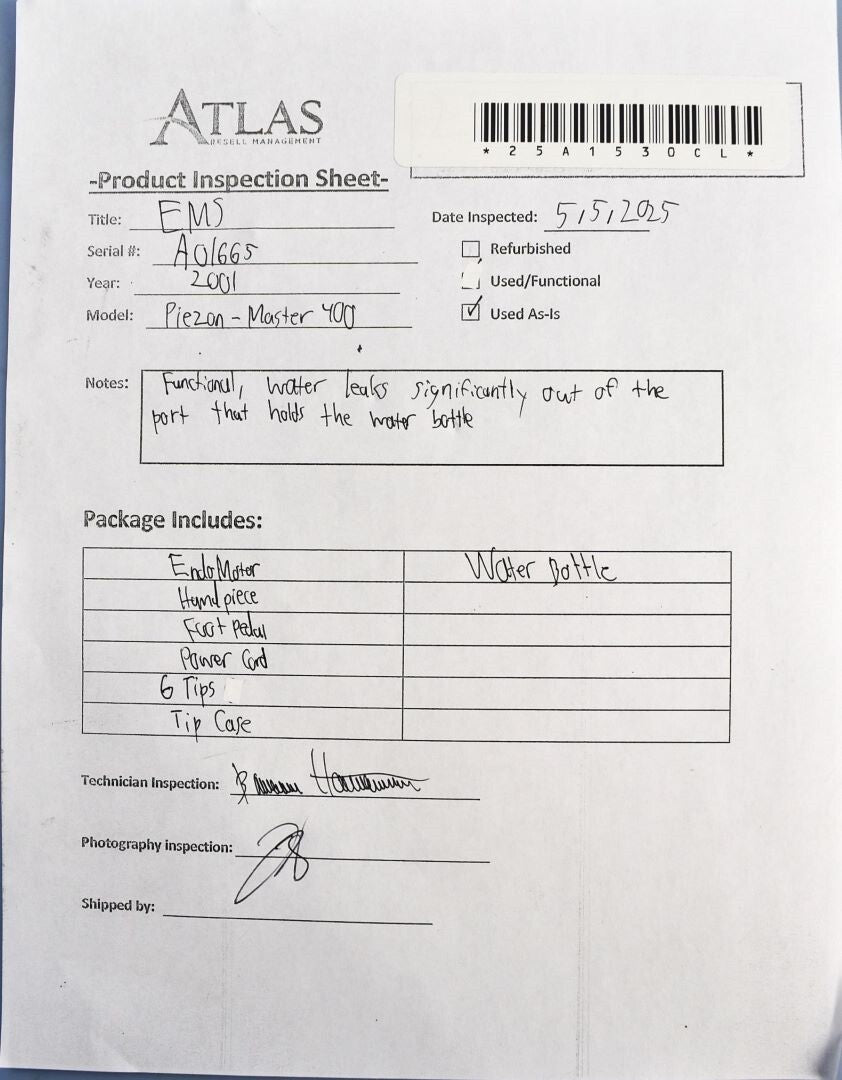 ATLAS
RESELL MANAGEMENT
*25A1530CL*
-Product Inspection Sheet-
Title: EMS
Date Inspected: 5/5/2025
Serial #: A01665
Refurbished
Year: 2001
Used/Functional
Model: Piezon-Master 400
Used As-Is
Notes: Functional, water leaks significantly out of the
port that holds the water bottle
Package Includes:
Endo Motor Water Bottle
Handpiece
Foot Pedal
Power Cord
6 Tips
Tip Case
Technician Inspection:
Photography inspection:
Shipped by: